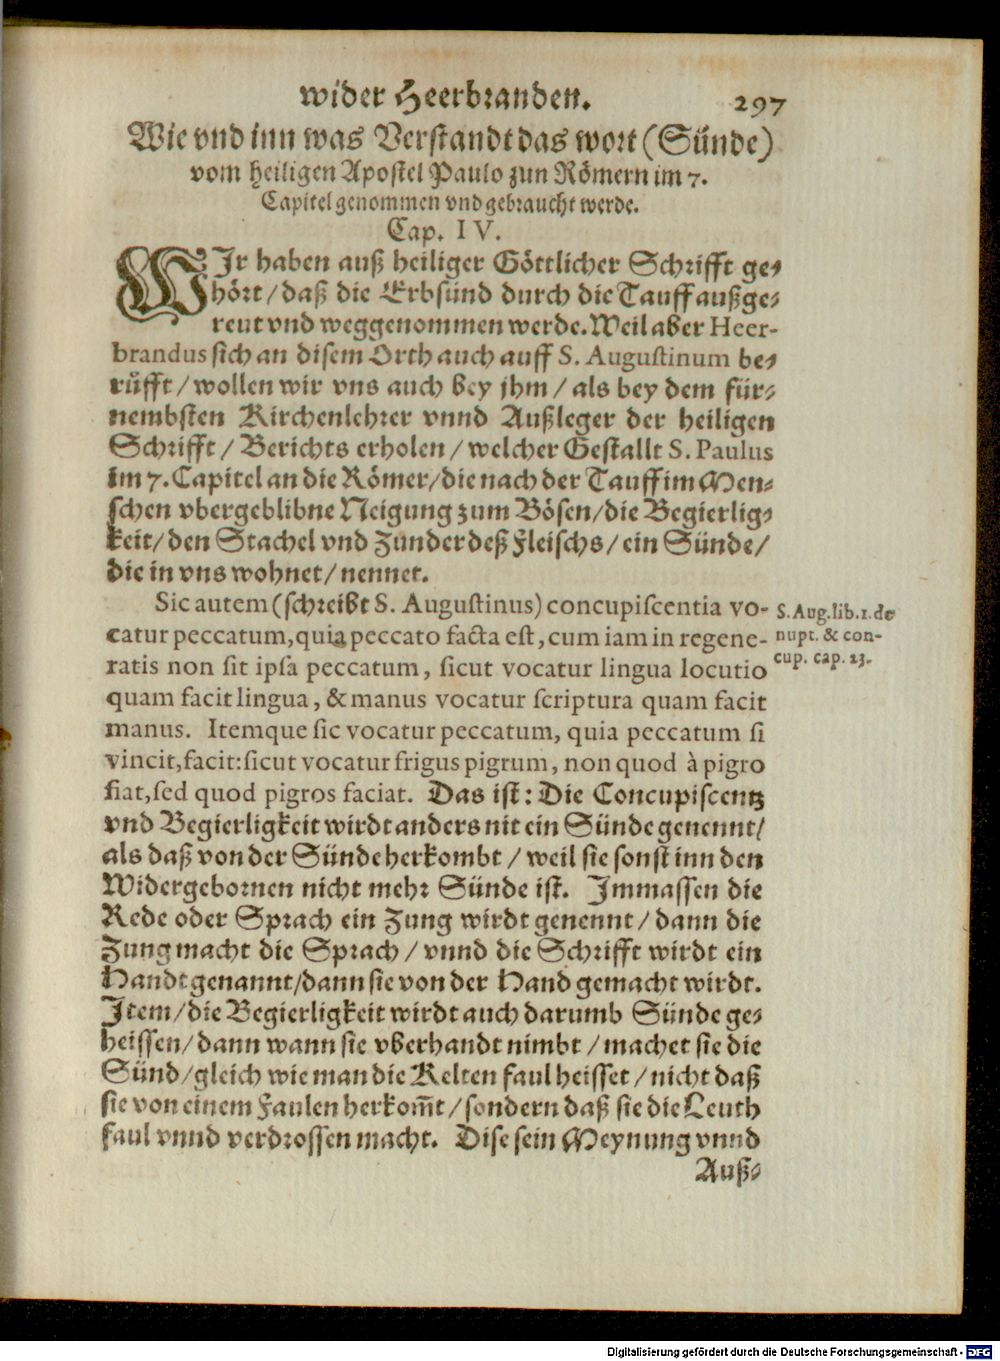 wider Heerbranden. 297
Wie vnd inn was Verstandt das wort (Sünde)
vom heiligen Apostel Paulo zun Römern im 7.
Capitel genommen vnd gebraucht werde.
Cap. IV.
WIr haben auß heiliger Göttlicher Schrifft ge-
hört / daß die Erbsünd durch die Tauff außge-
reut vnd weggenommen werde. Weil aber Heer-
brandus sich an disem Orth auch auff S. Augustinum be-
rüfft / wollen wir vns auch bey jhm / als bey dem für-
nembsten Kirchenlehrer vnnd Außleger der heiligen
Schrifft / Berichts erholen / welcher Gestallt S. Paulus
im 7. Capitel an die Römer / die nach der Tauff im Men-
schen vbergeblibne Neigung zum Bösen / die Begierlig-
keit / den Stachel vnd Zunder deß Fleischs / ein Sünde /
die in vns wohnet / nennet.
Sic autem (schreibt S. Augustinus) concupiscentia vo-
catur peccatum, quia peccato facta est, cum iam in regene-
ratis non sit ipsa peccatum, sicut vocatur lingua locutio
quam facit lingua, & manus vocatur scriptura quam facit
manus. Itemque sic vocatur peccatum, quia peccatum si
vincit, facit: sicut vocatur frigus pigrum, non quod à pigro
fiat, sed quod pigros faciat. Das ist: Die Concupiscentz
vnd Begierligkeit wirdt anders nit ein Sünde genennt /
als daß von der Sünde herkombt / weil sie sonst inn den
Widergebornen nicht mehr Sünde ist. Immassen die
Rede oder Sprach ein Zung wirdt genennt / dann die
Zung macht die Sprach / vnnd die Schrifft wirdt ein
Handt genannt / dann sie von der Hand gemacht wirdt.
Item / die Begierligkeit wirdt auch darumb Sünde ge-
heissen / dann wann sie vberhandt nimbt / machet sie die
Sünd / gleich wie man die Kelten faul heisset / nicht daß
sie von einem Faulen herkom̃t / sondern daß sie die Leuth
faul vnnd verdrossen macht. Dise sein Meynung vnnd
Auß-
S. Aug. lib. 1. de
nupt. & con-
cup. cap. 23.
Digitalisierung gefördert durch die Deutsche Forschungsgemeinschaft - DFG